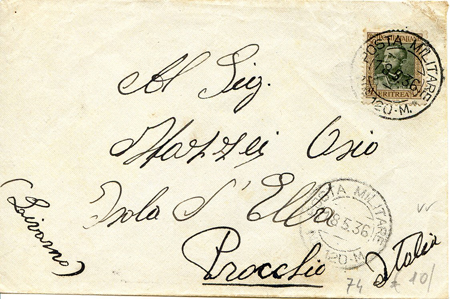 POSTA MILITARE
ERITREA
120-M.
Al Sig.
Mazzei Osio
Isola d'Elba
Procchio
(Livorno)
Italia
POSTA MILITARE
18.5.36
120-M
74 10/